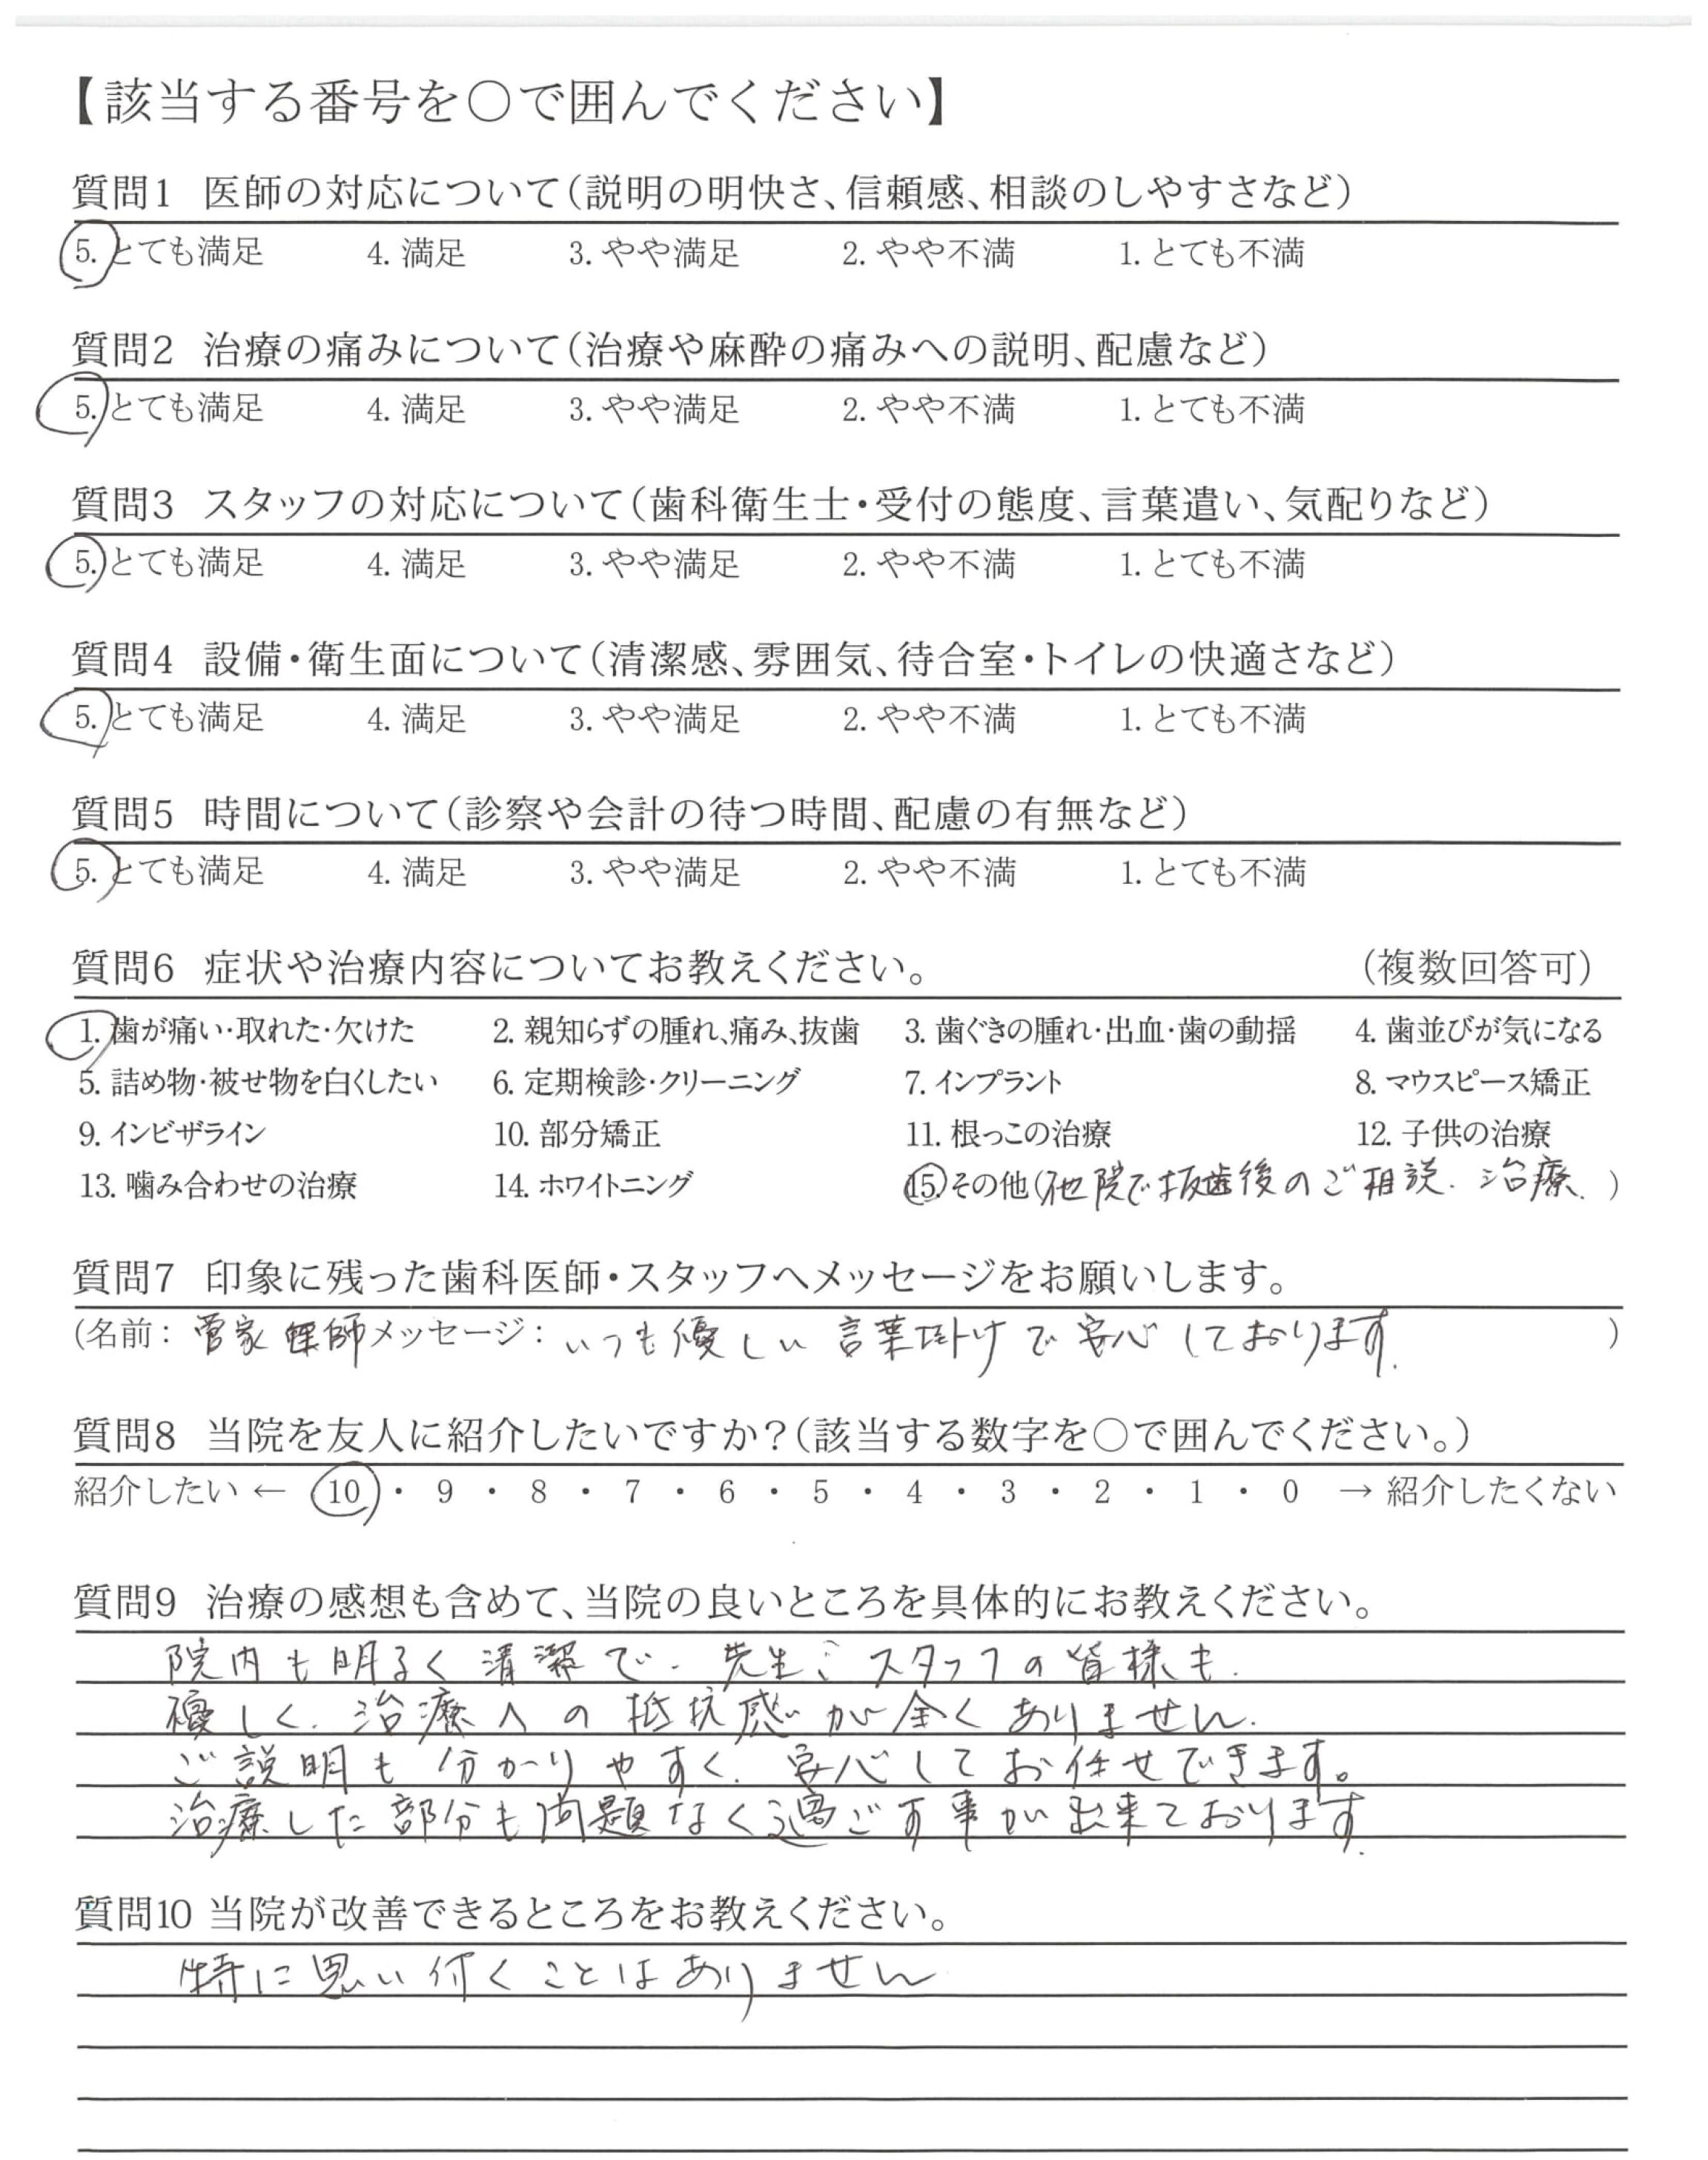 【該当する番号を○で囲んでください】
質問1 医師の対応について（説明の明快さ、信頼感、相談のしやすさなど）
5. とても満足 4. 満足 3. やや満足 2. やや不満 1. とても不満
質問2 治療の痛みについて（治療や麻酔の痛みへの説明、配慮など）
5. とても満足 4. 満足 3. やや満足 2. やや不満 1. とても不満
質問3 スタッフの対応について（歯科衛生士・受付の態度、言葉遣い、気配りなど）
5. とても満足 4. 満足 3. やや満足 2. やや不満 1. とても不満
質問4 設備・衛生面について（清潔感、雰囲気、待合室・トイレの快適さなど）
5. とても満足 4. 満足 3. やや満足 2. やや不満 1. とても不満
質問5 時間について（診察や会計の待つ時間、配慮の有無など）
5. とても満足 4. 満足 3. やや満足 2. やや不満 1. とても不満
質問6 症状や治療内容についてお教えください。 （複数回答可）
1. 歯が痛い・取れた・欠けた 2. 親知らずの腫れ、痛み、抜歯 3. 歯ぐきの腫れ・出血・歯の動揺 4. 歯並びが気になる
5. 詰め物・被せ物を白くしたい 6. 定期検診・クリーニング 7. インプラント 8. マウスピース矯正
9. インビザライン 10. 部分矯正 11. 根っこの治療 12. 子供の治療
13. 噛み合わせの治療 14. ホワイトニング 15. その他（他院で抜歯後のご相談．治療．）
質問7 印象に残った歯科医師・スタッフへメッセージをお願いします。
（名前：菅家医師 メッセージ：いつも優しい言葉掛けで安心しております．）
質問8 当院を友人に紹介したいですか？（該当する数字を○で囲んでください。）
紹介したい ← 10 ・ 9 ・ 8 ・ 7 ・ 6 ・ 5 ・ 4 ・ 3 ・ 2 ・ 1 ・ 0 → 紹介したくない
質問9 治療の感想も含めて、当院の良いところを具体的にお教えください。
院内も明るく清潔で．先生、スタッフの皆様も．
優しく．治療への抵抗感が全くありません．
ご説明も分かりやすく．安心してお任せできます。
治療した部分も問題なく過ごす事が出来ております．
質問10 当院が改善できるところをお教えください。
特に思い付くことはありません